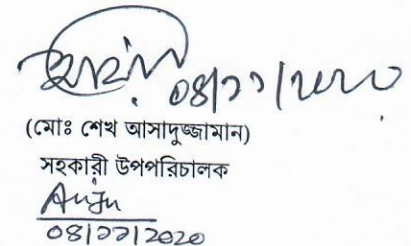 ০৪/১১/২০২০
(মোঃ শেখ আসাদুজ্জামান)
সহকারী উপপরিচালক
০৪/১১/২০২০